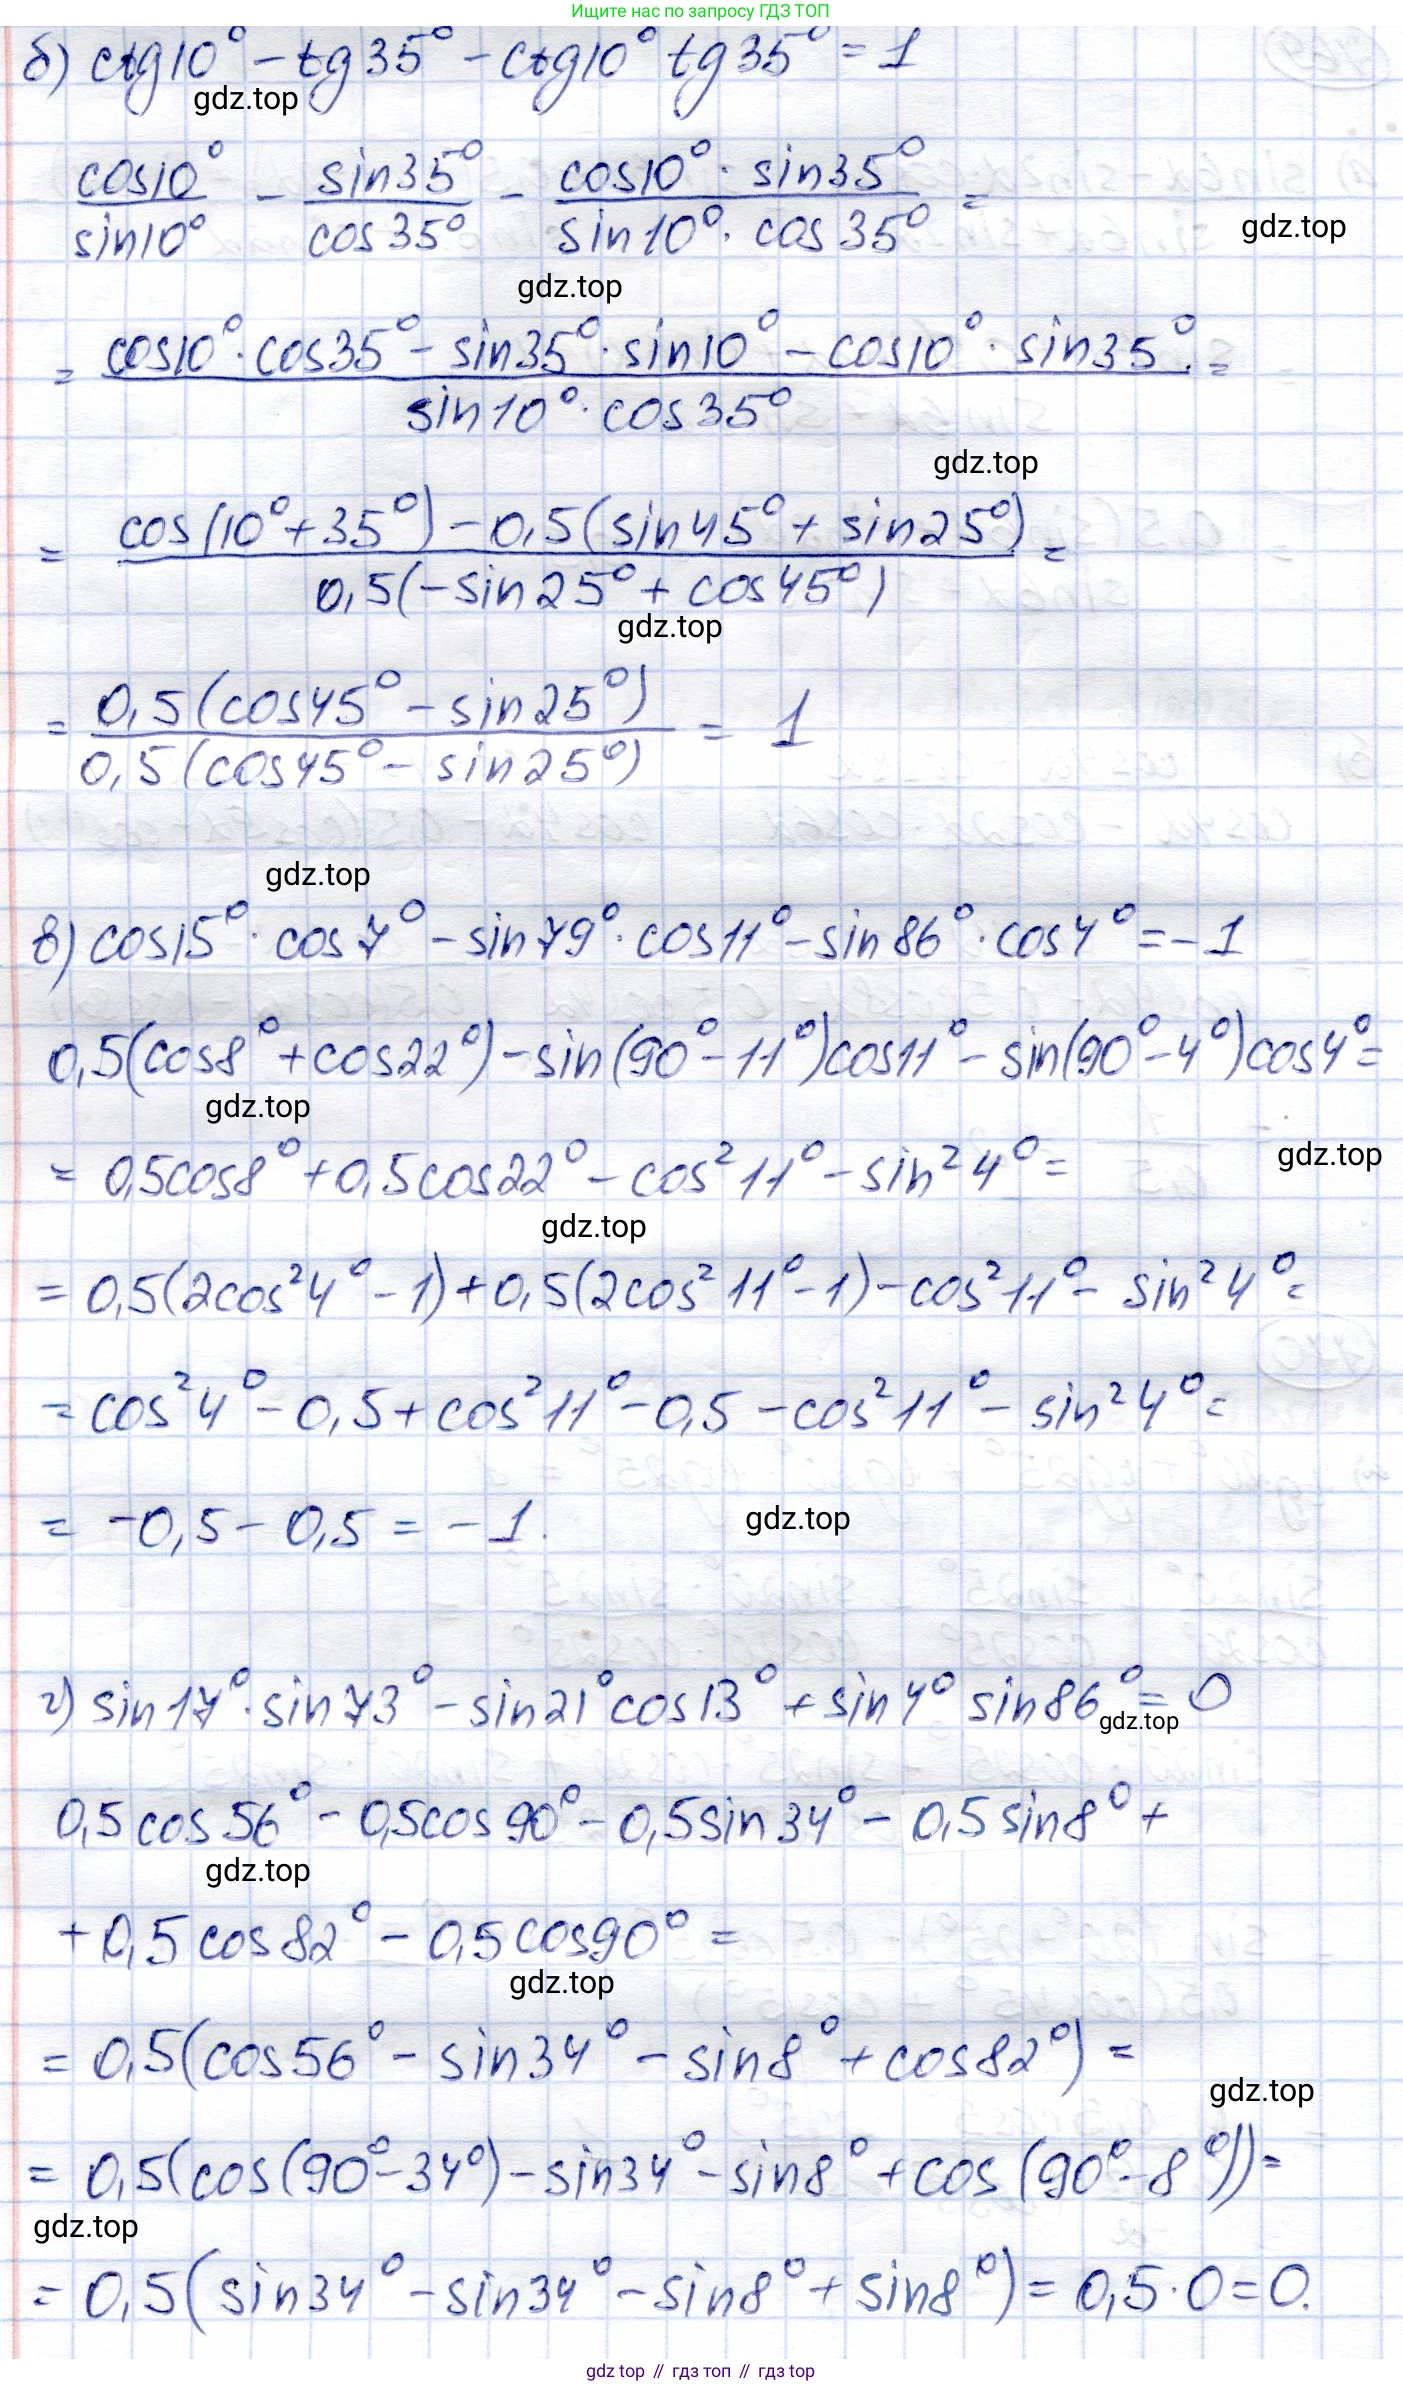 Ищите нас по запросу ГДЗ ТОП
б) ctg10° – tg35° – ctg10° tg35° = 1
gdz.top
cos10°/sin10° – sin35°/cos35° – cos10° · sin35°/sin10° · cos35° =
gdz.top
gdz.top
= cos10° · cos35° – sin35° · sin10° – cos10° · sin35°/sin10° · cos35° =
gdz.top
= cos(10° + 35°) – 0,5(sin45° + sin25°)/0,5(–sin25° + cos45°) =
gdz.top
= 0,5(cos45° – sin25°)/0,5(cos45° – sin25°) = 1
gdz.top
в) cos15° · cos7° – sin79° · cos11° – sin86° · cos4° = –1
0,5(cos8° + cos22°) – sin(90° – 11°)cos11° – sin(90° – 4°)cos4° =
gdz.top
= 0,5cos8° + 0,5cos22° – cos²11° – sin²4° =
gdz.top
gdz.top
= 0,5(2cos²4° – 1) + 0,5(2cos²11° – 1) – cos²11° – sin²4° =
= cos²4° – 0,5 + cos²11° – 0,5 – cos²11° – sin²4° =
= –0,5 – 0,5 = –1.
gdz.top
г) sin17° · sin73° – sin21° cos13° + sin4° sin86° = 0
gdz.top
0,5cos56° – 0,5cos90° – 0,5sin34° – 0,5sin8° +
gdz.top
+ 0,5cos82° – 0,5cos90° =
gdz.top
= 0,5(cos56° – sin34° – sin8° + cos82°) =
gdz.top
= 0,5(cos(90° – 34°) – sin34° – sin8° + cos(90° – 8°)) =
gdz.top
= 0,5(sin34° – sin34° – sin8° + sin8°) = 0,5 · 0 = 0.
gdz top // гдз топ // гдз top